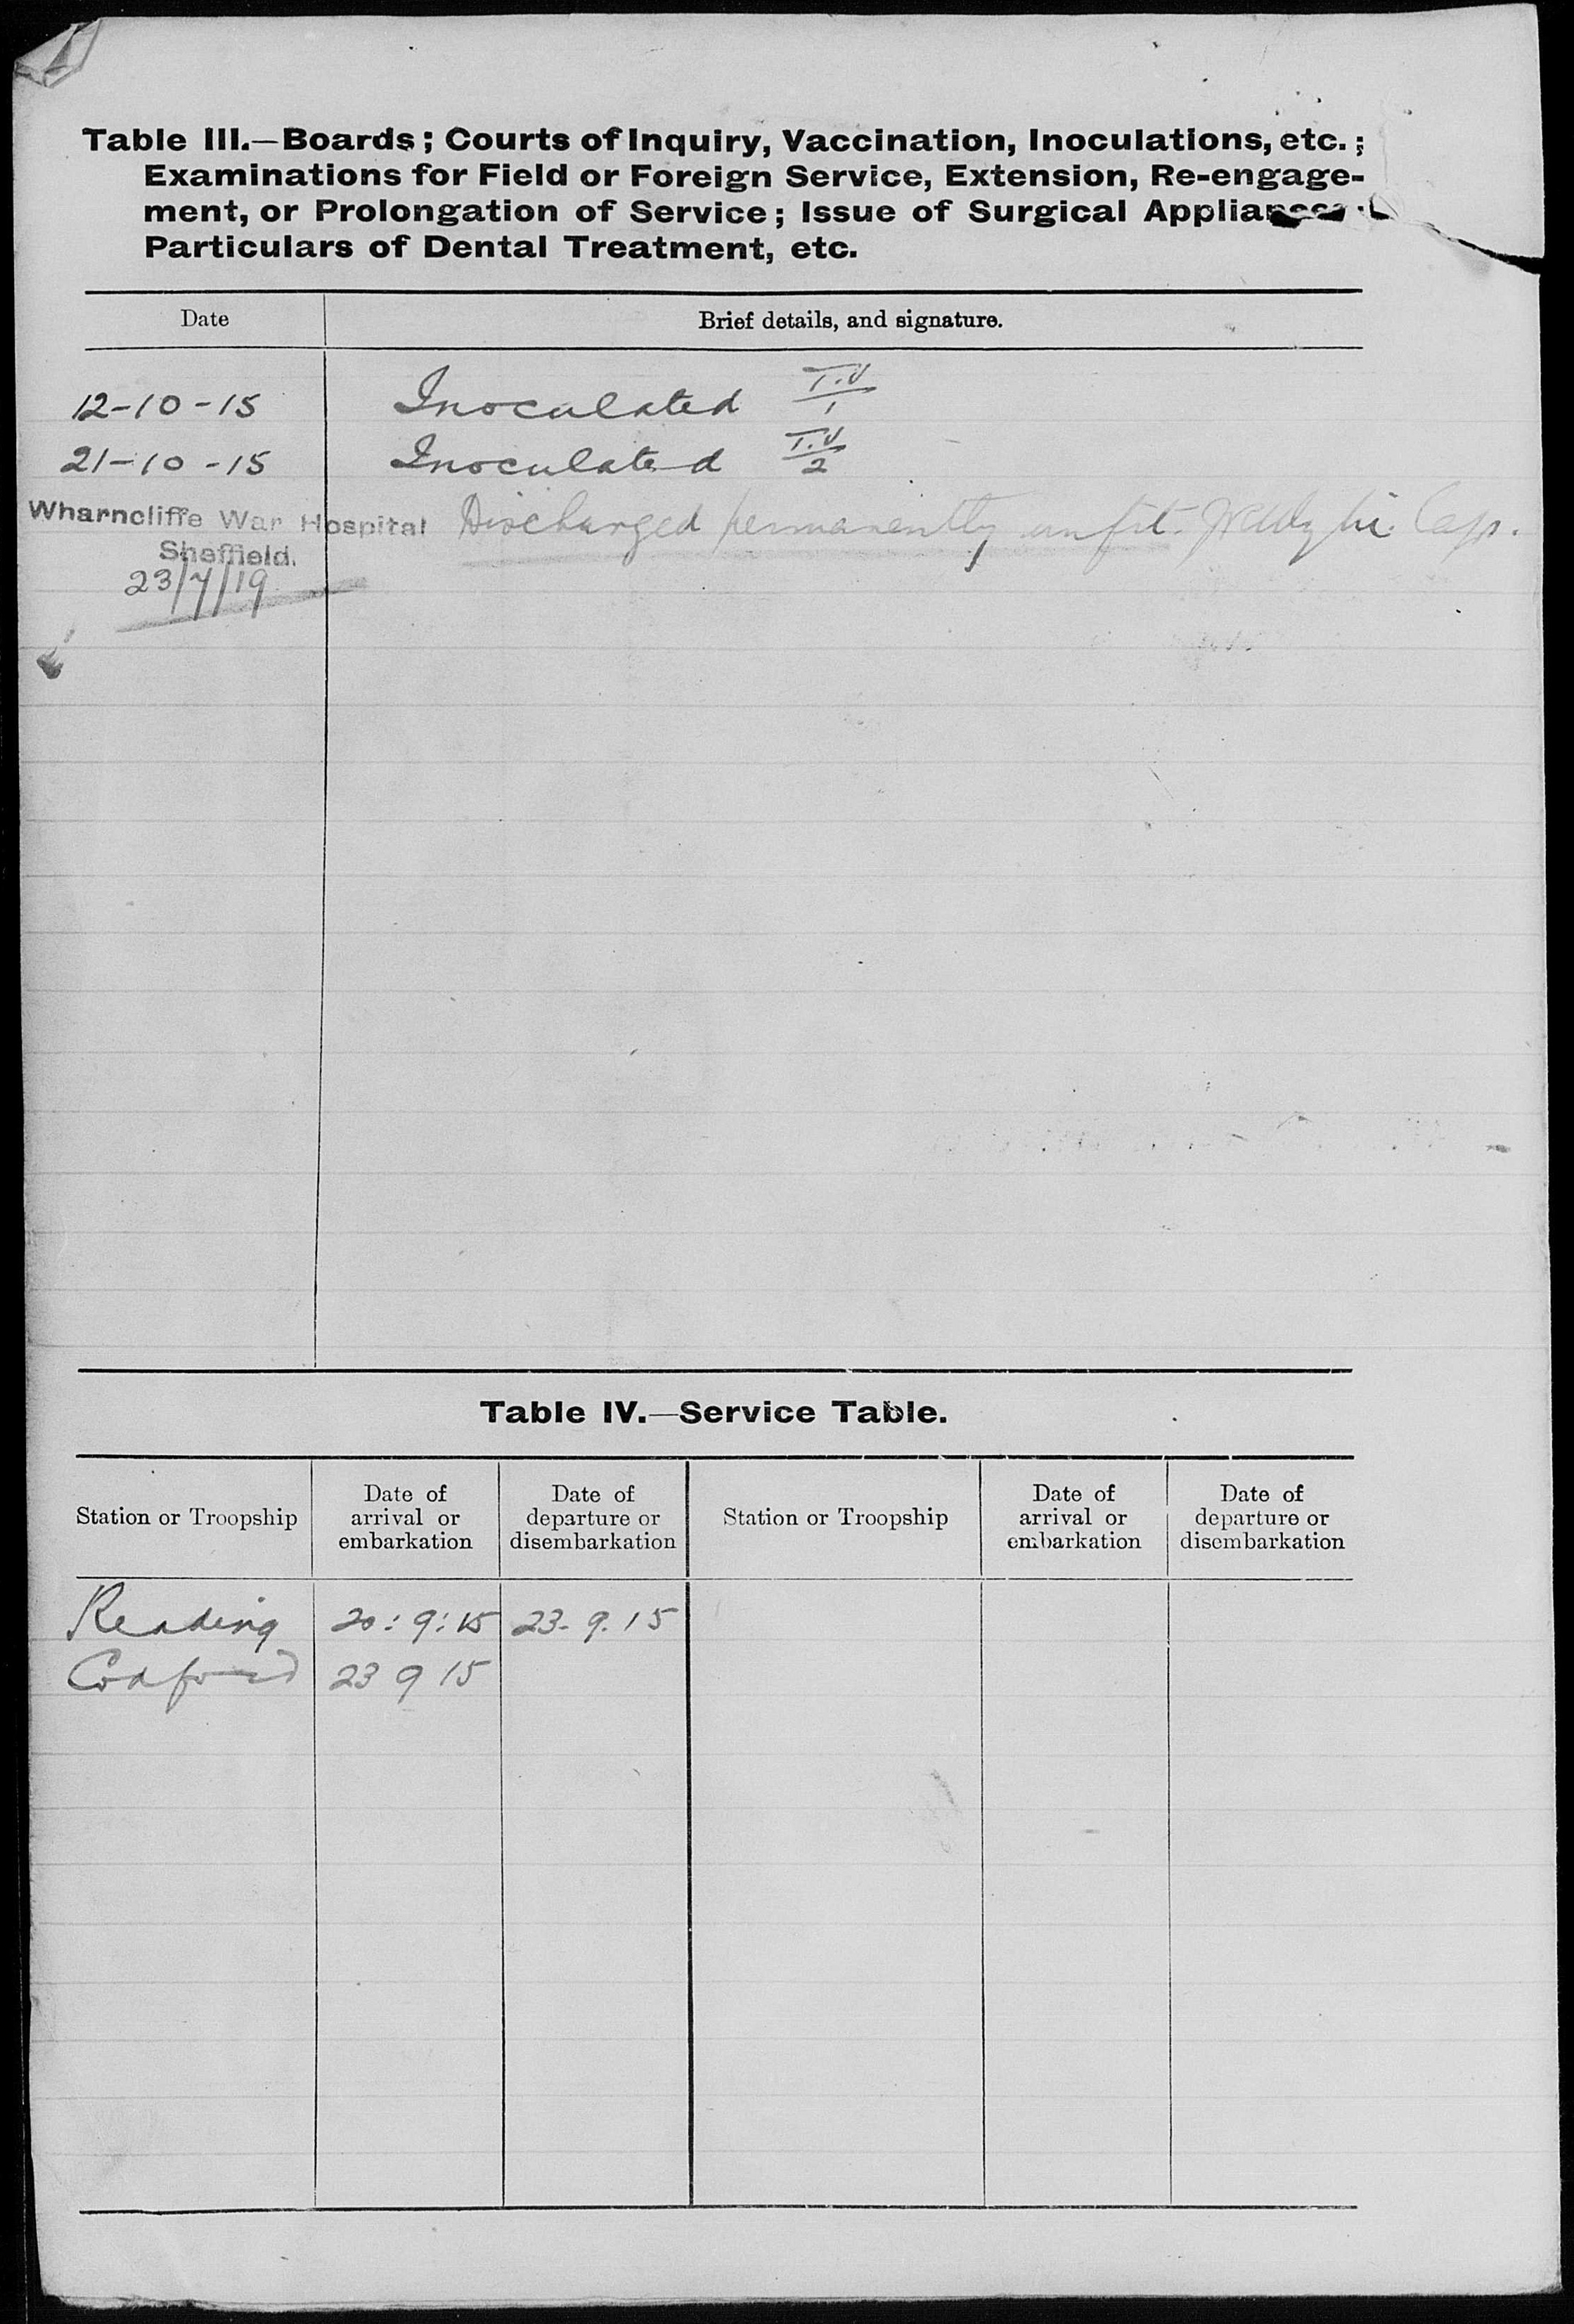 Table III.—Boards; Courts of Inquiry, Vaccination, Inoculations, etc.;
Examinations for Field or Foreign Service, Extension, Re-engage-
ment, or Prolongation of Service; Issue of Surgical Appliances;
Particulars of Dental Treatment, etc.
Date Brief details, and signature.
12-10-15 Inoculated T.V/1
21-10-15 Inoculated T.V/2
Wharncliffe War Hospital Discharged permanently unfit. Cap.
Sheffield.
23/7/19
Table IV.—Service Table.
Station or Troopship Date of arrival or embarkation Date of departure or disembarkation Station or Troopship Date of arrival or embarkation Date of departure or disembarkation
Reading 20:9:15 23.9.15
Codford 23 9 15